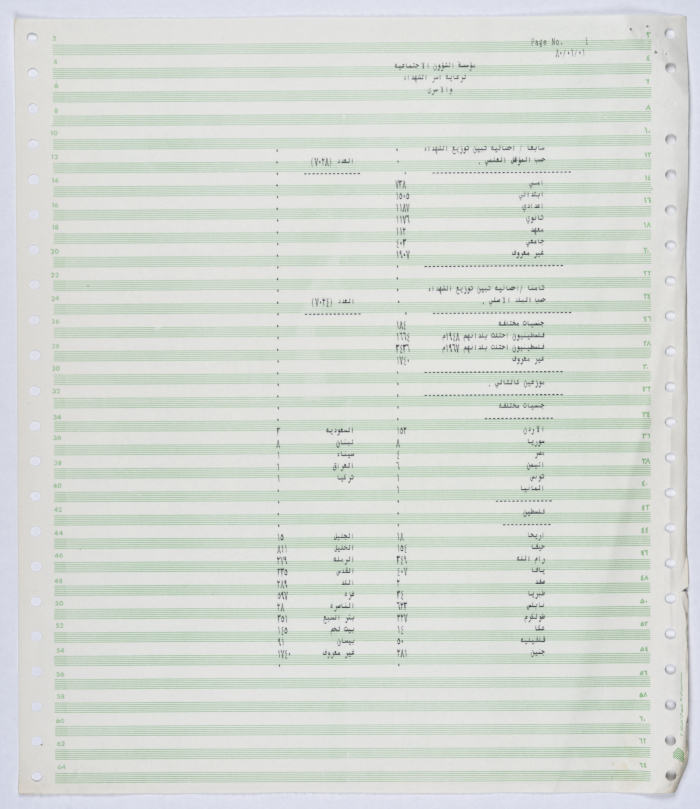 Page No. 1
مؤسسة الشؤون الاجتماعية
لرعاية اسر الشهداء
والاسرى
سابعا / احصائية تبين توزيع الشهداء
حسب المؤهل العلمي . العدد (٧٠٢٨)
امي ٧٣٨
ابتدائي ١٥٠٥
اعدادي ١١٨٧
ثانوي ١١٧٦
معهد ١١٢
جامعي ٤٠٣
غير معروف ١٩٠٧
ثامنا /احصائية تبين توزيع الشهداء
حسب البلد الاصلي . العدد (٧٠٢٤)
جنسيات مختلفة ١٨٤
فلسطينيون احتلت بلداتهم ١٩٤٨م ١٦٦٤
فلسطينيون احتلت بلداتهم ١٩٦٧م ٣٤٣٦
غير معروف ١٧٤٠
موزعين كالتالي .
جنسيات مختلفة
الاردن ١٥٢ السعودية ٣
سوريا ٨ لبنان ٨
مصر ٤ سيناء ١
اليمن ٦ العراق ١
تونس ١ تركيا ١
المانيا ١
فلسطين
اريحا ١٨ الجليل ١٥
حيفا ١٥٤ الخليل ٨١١
رام الله ٣٤٩ الرملة ٢٧٩
يافا ٤٠٧ القدس ٣٣٥
صفد ٢ اللد ٢٨٩
طبريا ٣٤ غزة ٥٩٧
نابلس ٦٢٣ الناصرة ٢٨
طولكرم ٣٢٧ بئر السبع ٣٥١
عكا ١٤ بيت لحم ١٤٥
قلقيلية ٥٠ بيسان ٩١
جنين ٢٨١ غير معروف ١٧٤٠